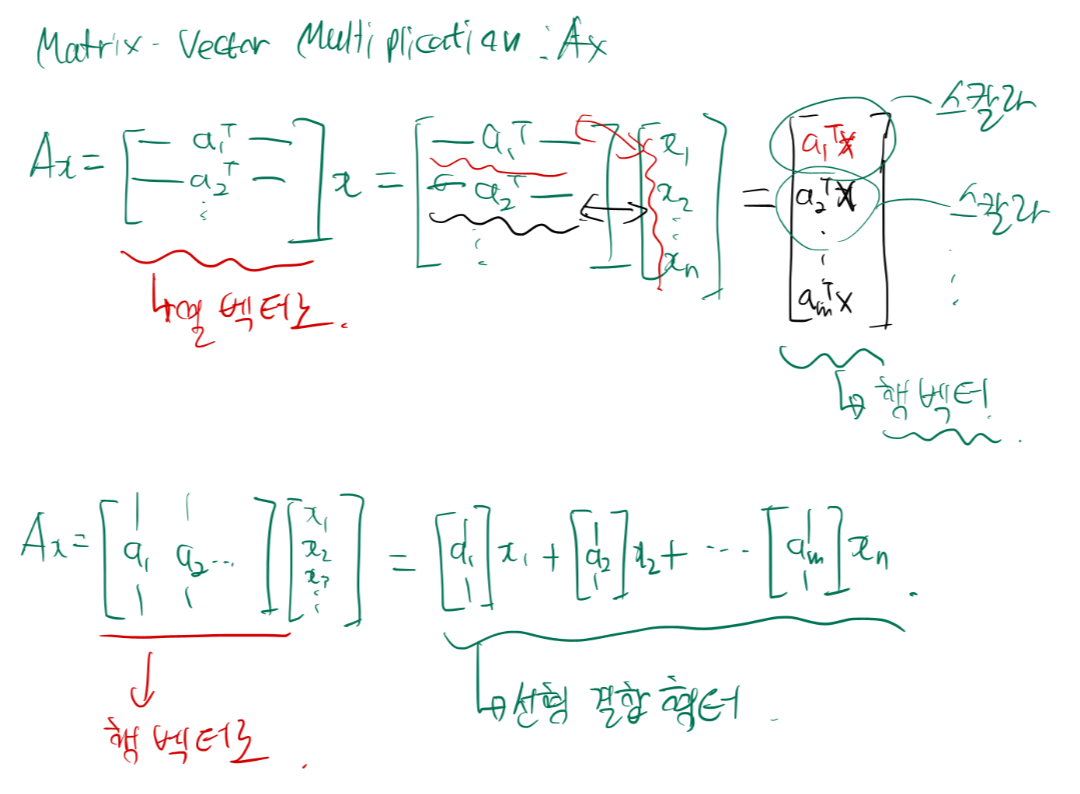 Matrix - Vector Multiplication : Ax
Ax = [ — a₁ᵀ — — a₂ᵀ — ⋮ ] x = [ — a₁ᵀ — — a₂ᵀ — ⋮ ] [ x₁ x₂ ⋮ xₙ ] = [ a₁ᵀx a₂ᵀx ⋮ aₘᵀx ]
스칼라
스칼라
⋮
열 벡터로.
행 벡터.
Ax = [ a₁ a₂ ... ] [ x₁ x₂ x₃ ⋮ ] = [ a₁ ] x₁ + [ a₂ ] x₂ + ... [ aₘ ] xₙ .
행 벡터로.
선형 결합 형터.